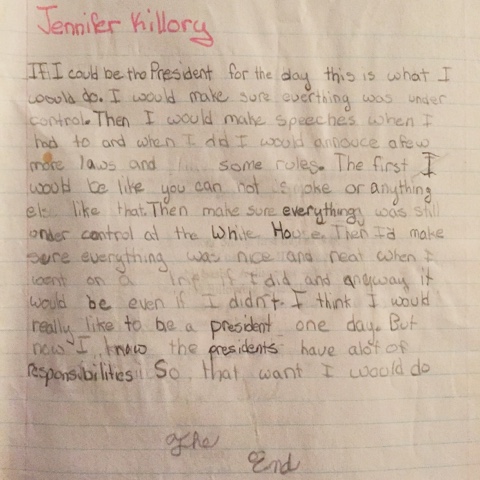 Jennifer Killory
If I could be the President for the day this is what I
would do. I would make sure everthing was under
control. Then I would make speeches when I
had to and when I did I would annouce a few
more laws and some rules. The first I
would be like you can not or anything
like that. Then make sure everything was still
under control at the White House. Then I'd make
sure everything was nice and neat when I
went on a if I did and anyway it
would be even if I didn't. I think I would
really like to be a president one day. But
now I know the presidents have alot of
responsibilities So that want I would do
The
End